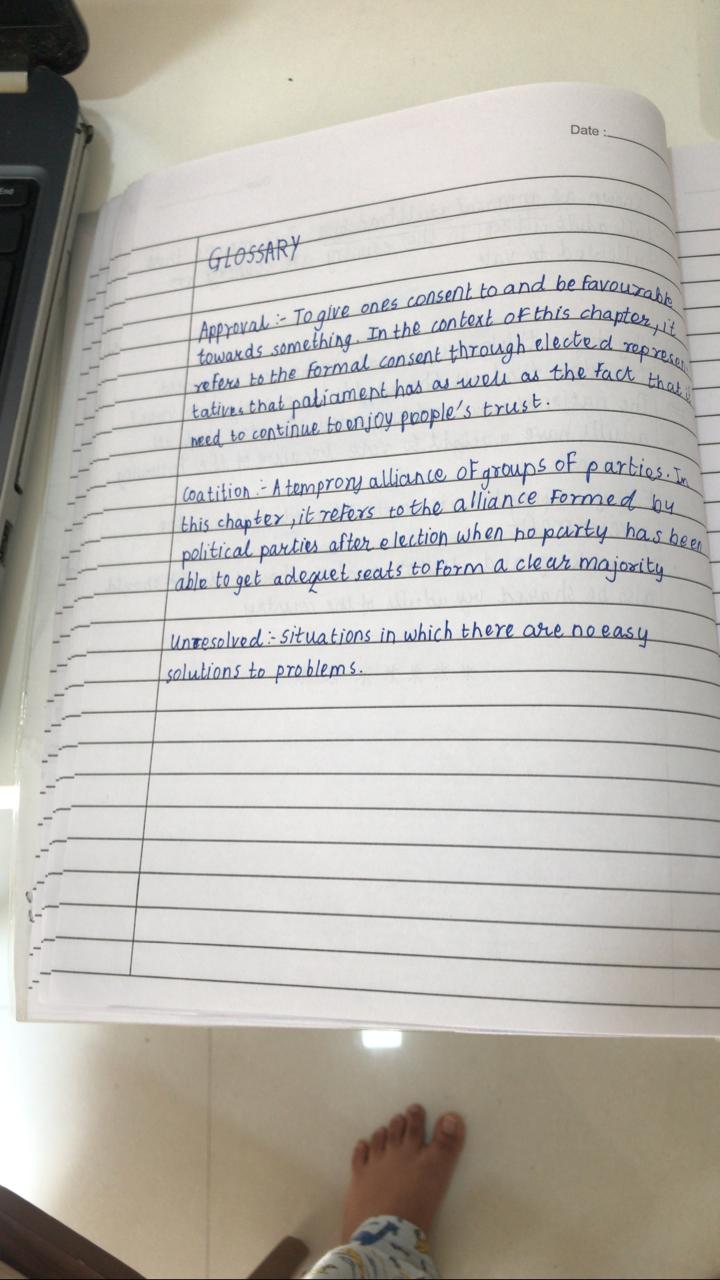 End
Date :
GLOSSARY
Approval :- To give ones consent to and be favourable
towards something. In the context of this chapter, it
refers to the formal consent through elected represen
tatives that paliament has as well as the fact that it
need to continue to enjoy people's trust.
Coatition :- A temprory alliance of groups of parties. In
this chapter, it refers to the alliance formed by
political parties after election when no party has been
able to get adequet seats to form a clear majority
Unresolved :- situations in which there are no easy
solutions to problems.